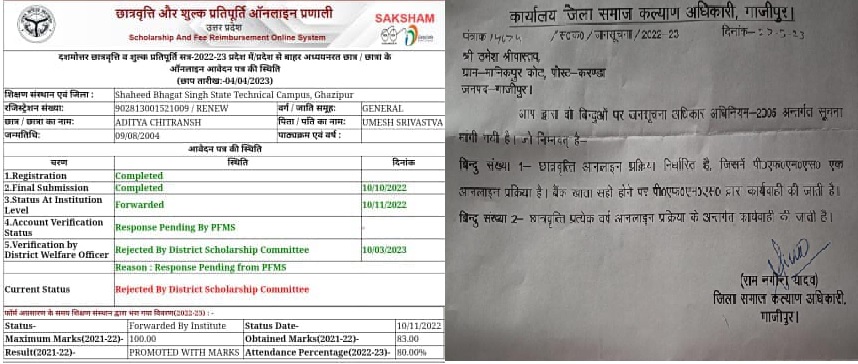 छात्रवृत्ति और शुल्क प्रतिपूर्ति ऑनलाइन प्रणाली
उत्तर प्रदेश
Scholarship And Fee Reimbursement Online System
SAKSHAM
दशमोत्तर छात्रवृत्ति व शुल्क प्रतिपूर्ति सत्र-2022-23 प्रदेश में/प्रदेश से बाहर अध्ययनरत छात्र / छात्रा के
ऑनलाइन आवेदन पत्र की स्थिति
(छाप तारीख:-04/04/2023)
शिक्षण संस्थान एवं जिला : Shaheed Bhagat Singh State Technical Campus, Ghazipur
रजिस्ट्रेशन संख्या: 902813001521009 / RENEW वर्ग / जाति समूह: GENERAL
छात्र / छात्रा का नाम: ADITYA CHITRANSH पिता / पति का नाम: UMESH SRIVASTVA
जन्मतिथि: 09/08/2004 पाठ्यक्रम एवं वर्ष :
आवेदन पत्र की स्थिति
चरण स्थिति दिनांक
1.Registration Completed
2.Final Submission Completed 10/10/2022
3.Status At Institution Level Forwarded 10/11/2022
4.Account Verification Status Response Pending By PFMS -
5.Verification by District Welfare Officer Rejected By District Scholarship Committee 10/03/2023
Reason : Response Pending from PFMS
Current Status Rejected By District Scholarship Committee
फॉर्म अग्रसारण के समय शिक्षण संस्थान द्वारा भरा गया विवरण(2022-23) :-
Status- Forwarded By Institute Status Date- 10/11/2022
Maximum Marks(2021-22)- 100.00 Obtained Marks(2021-22)- 83.00
Result(2021-22)- PROMOTED WITH MARKS Attendance Percentage(2022-23)- 80.00%
कार्यालय जिला समाज कल्याण अधिकारी, गाजीपुर।
/जनसूचना/2022-23 दिनांक-
श्री उमेश श्रीवास्तव,
ग्राम-मानिकपुर कोट, पोस्ट-करण्डा
जनपद-गाजीपुर।
आप द्वारा दो बिन्दुओं पर जनसूचना अधिकार अधिनियम-2005 अन्तर्गत सूचना
मांगी गयी है। जो निम्नवत् है-
बिन्दु संख्या 1- छात्रवृत्ति आनलाइन प्रक्रिया निर्धारित है, जिसमें पी०एफ०एम०एस० एक
आनलाइन प्रक्रिया है। बैंक खाता सही होने पर पी०एफ०एम०एस० द्वारा कार्यवाही की जाती है।
बिन्दु संख्या 2- छात्रवृत्ति प्रत्येक वर्ष आनलाइन प्रक्रिया के अन्तर्गत कार्यवाही की जाती है।
(राम नगीना यादव)
जिला समाज कल्याण अधिकारी,
गाजीपुर।